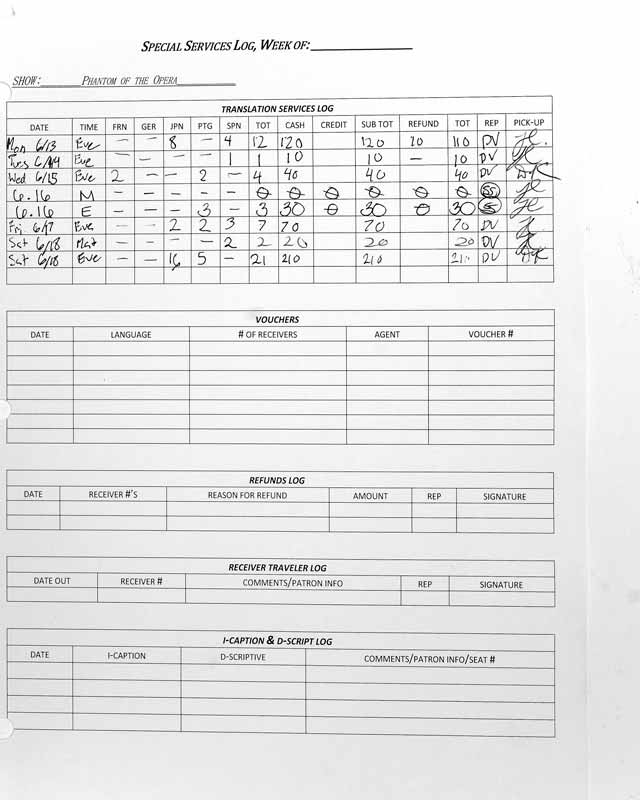 SPECIAL SERVICES LOG, WEEK OF:
SHOW: PHANTOM OF THE OPERA
TRANSLATION SERVICES LOG
DATE TIME FRN GER JPN PTG SPN TOT CASH CREDIT SUB TOT REFUND TOT REP PICK-UP
Mon 6/13 Eve — — 8 — 4 12 120 120 10 110 DV
Tues 6/14 Eve — — — — 1 1 10 10 — 10 DV
Wed 6/15 Eve 2 — — 2 — 4 40 40 40 DV
6.16 M — — — — — 0 0 0 0 0 0 SS
6.16 E — — — 3 — 3 30 0 30 0 30 S
Fri. 6/17 Eve — — 2 2 3 7 70 70 70 DV
Sat 6/18 Mat — — — — 2 2 20 20 20 DV
Sat 6/18 Eve — — 16 5 — 21 210 210 210 DV
VOUCHERS
DATE LANGUAGE # OF RECEIVERS AGENT VOUCHER #
REFUNDS LOG
DATE RECEIVER #'S REASON FOR REFUND AMOUNT REP SIGNATURE
RECEIVER TRAVELER LOG
DATE OUT RECEIVER # COMMENTS/PATRON INFO REP SIGNATURE
I-CAPTION & D-SCRIPT LOG
DATE I-CAPTION D-SCRIPTIVE COMMENTS/PATRON INFO/SEAT #